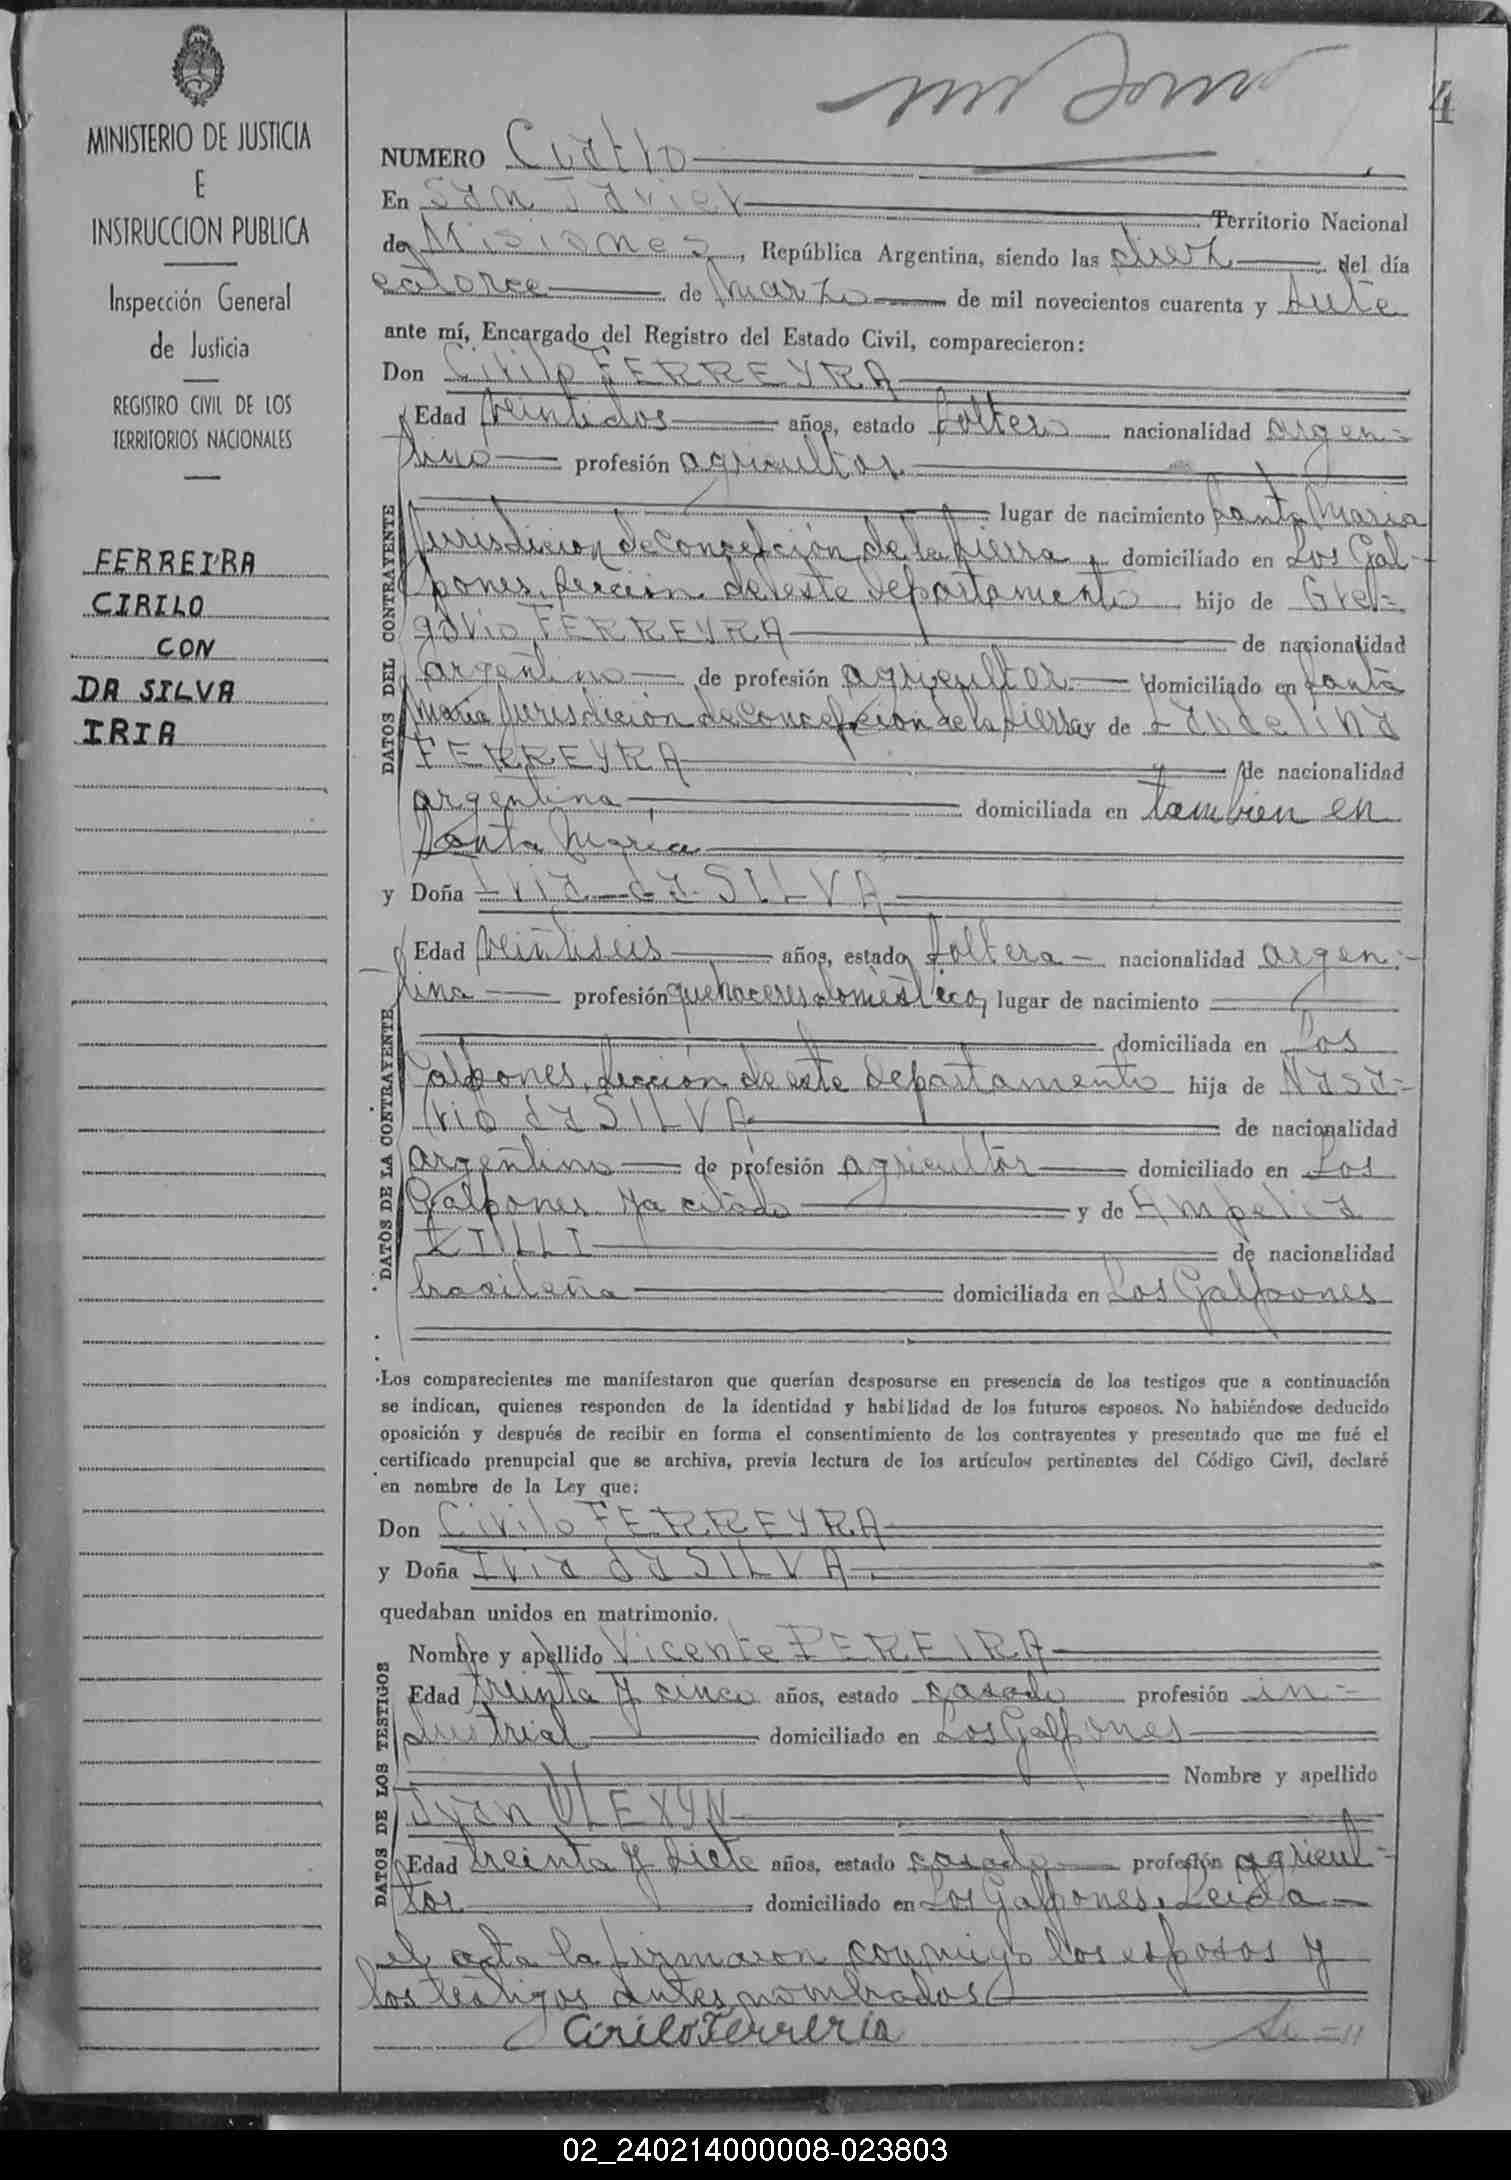 MINISTERIO DE JUSTICIA
E
INSTRUCCION PUBLICA
Inspección General
de Justicia
REGISTRO CIVIL DE LOS
TERRITORIOS NACIONALES
FERREIRA
CIRILO
CON
DA SILVA
IRIA
4
NUMERO Cuatro
En San Javier Territorio Nacional
de Misiones, República Argentina, siendo las diez del día
catorce de marzo de mil novecientos cuarenta y siete
ante mí, Encargado del Registro del Estado Civil, comparecieron:
Don Cirilo FERREYRA
DATOS DEL CONTRAYENTE
Edad veintidos años, estado soltero nacionalidad argen=
tino profesión agricultor
lugar de nacimiento Santa Maria
Jurisdicion de Concepción de la Sierra, domiciliado en Los Gal-
pones, sección de este departamento hijo de Gre=
gorio FERREYRA de nacionalidad
argentino de profesión agricultor domiciliado en Santa
Maria Jurisdicción de Concepcion de la Sierra y de Laudelina
FERREYRA de nacionalidad
argentina domiciliada en tambien en
Santa Maria
y Doña Iria da SILVA
DATOS DE LA CONTRAYENTE
Edad veintiseis años, estado soltera nacionalidad argen=
tina profesión quehaceres domestico, lugar de nacimiento
domiciliada en Los
Galpones, sección de este departamento hija de Nasa=
rio da SILVA de nacionalidad
argentino de profesión agricultor domiciliado en Los
Galpones ya citado y de Ampelia
ZILLI de nacionalidad
brasileña domiciliada en Los Galpones
Los comparecientes me manifestaron que querían desposarse en presencia de los testigos que a continuación
se indican, quienes responden de la identidad y habilidad de los futuros esposos. No habiéndose deducido
oposición y después de recibir en forma el consentimiento de los contrayentes y presentado que me fué el
certificado prenupcial que se archiva, previa lectura de los artículos pertinentes del Código Civil, declaré
en nombre de la Ley que:
Don Cirilo FERREYRA
y Doña Iria da SILVA
quedaban unidos en matrimonio.
DATOS DE LOS TESTIGOS
Nombre y apellido Vicente PEREIRA
Edad treinta y cinco años, estado casado profesión in=
dustrial domiciliado en Los Galpones
Nombre y apellido
Juan OLEXYN
Edad treinta y siete años, estado casado profesión agricul=
tor domiciliado en Los Galpones. Leida
el acta la firmaron conmigo los esposos y
los testigos antes nombrados
Cirilo Ferreria
02_240214000008-023803